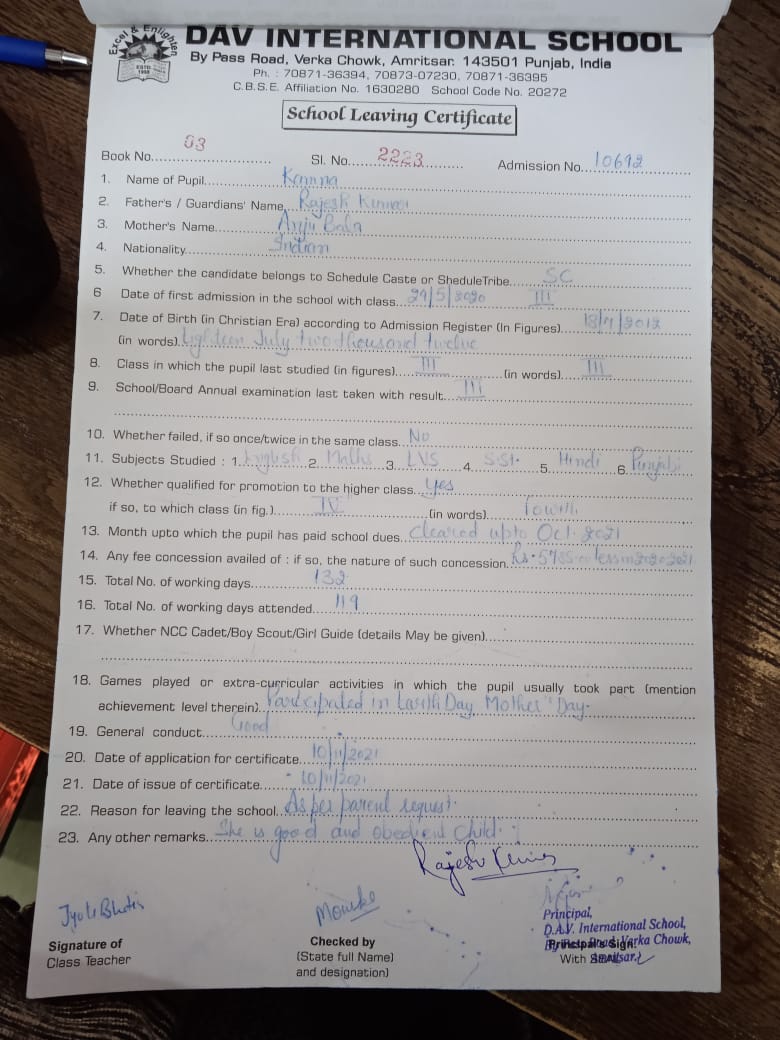 Excel & Enlighten
ESTD.
DAV INTERNATIONAL SCHOOL
By Pass Road, Verka Chowk, Amritsar. 143501 Punjab, India
Ph. : 70871-36394, 70873-07230, 70871-36395
C.B.S.E. Affiliation No. 1630280 School Code No. 20272
School Leaving Certificate
Book No. 03 Sl. No. 2223 Admission No. 10692
1. Name of Pupil
2. Father's / Guardians' Name Rajesh Kumar
3. Mother's Name Anju Bala
4. Nationality Indian
5. Whether the candidate belongs to Schedule Caste or SheduleTribe SC
6 Date of first admission in the school with class 29/5/2020 III
7. Date of Birth (in Christian Era) according to Admission Register (In Figures) 18/7/2012
(in words) Eighteen July two thousand twelve
8. Class in which the pupil last studied (in figures) III (in words) III
9. School/Board Annual examination last taken with result III
10. Whether failed, if so once/twice in the same class No
11. Subjects Studied : 1. English 2. Maths 3. LVS 4. S.St. 5. Hindi 6. Punjabi
12. Whether qualified for promotion to the higher class Yes
if so, to which class (in fig.) IV (in words)
13. Month upto which the pupil has paid school dues cleared upto Oct. 2021
14. Any fee concession availed of : if so, the nature of such concession. Rs. less in 2020-2021
15. Total No. of working days 132
16. Total No. of working days attended 119
17. Whether NCC Cadet/Boy Scout/Girl Guide (details May be given)
18. Games played or extra-curricular activities in which the pupil usually took part (mention
achievement level therein) Participated in Earth Day Mother's Day.
19. General conduct Good
20. Date of application for certificate 10/11/2021
21. Date of issue of certificate 10/11/2021
22. Reason for leaving the school As per parent request.
23. Any other remarks She is good and obedient child.
Rajesh Kumar
Principal,
D.A.V. International School,
By Pass Road, Verka Chowk,
Amritsar.
Signature of
Class Teacher
Checked by
(State full Name)
and designation)
Principal's Sign.
With Seal